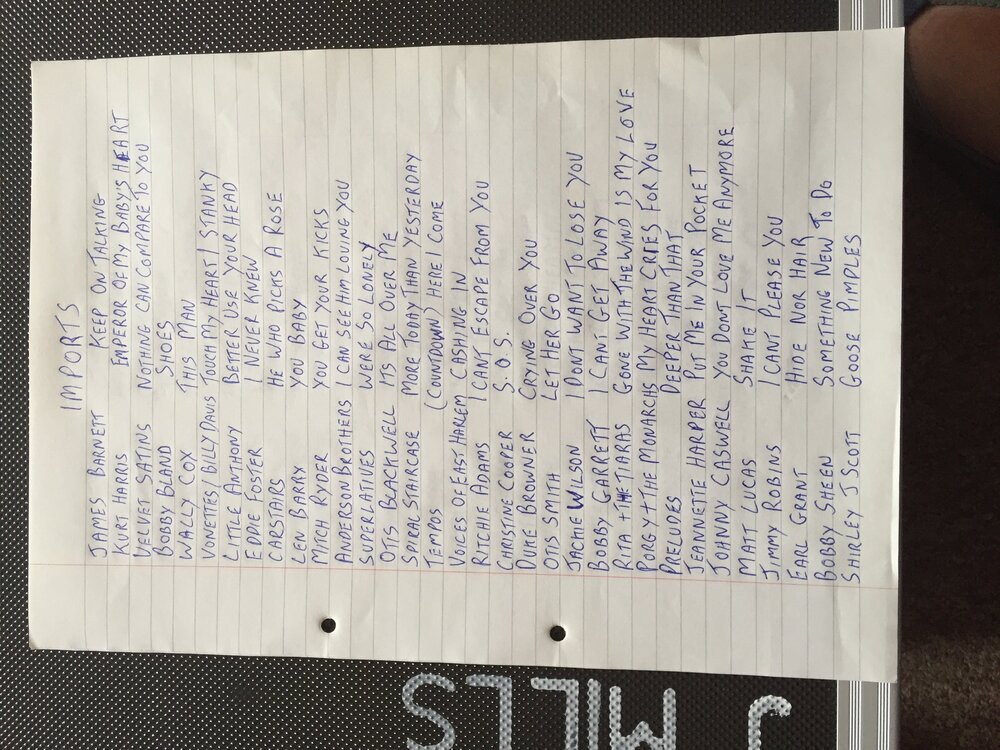 IMPORTS
JAMES BARNETT KEEP ON TALKING
KURT HARRIS EMPEROR OF MY BABY'S HEART
VELVET SATINS NOTHING CAN COMPARE TO YOU
BOBBY BLAND SHOES
WALLY COX THIS MAN
VONETTES/BILLY DAVIS TOUCH MY HEART / STANKY
LITTLE ANTHONY BETTER USE YOUR HEAD
EDDIE FOSTER I NEVER KNEW
CARSTAIRS HE WHO PICKS A ROSE
LEN BARRY YOU BABY
MITCH RYDER YOU GET YOUR KICKS
ANDERSON BROTHERS I CAN SEE HIM LOVING YOU
SUPERLATIVES WERE SO LONELY
OTIS BLACKWELL ITS ALL OVER ME
SPIRAL STAIRCASE MORE TODAY THAN YESTERDAY
TEMPOS (COUNTDOWN) HERE I COME
VOICES OF EAST HARLEM CASHING IN
RITCHIE ADAMS I CANT ESCAPE FROM YOU
CHRISTINE COOPER S.O.S.
DUKE BROWNER CRYING OVER YOU
OTIS SMITH LET HER GO
JACKIE WILSON I DONT WANT TO LOSE YOU
BOBBY GARRETT I CANT GET AWAY
RITA + THE TIARAS GONE WITH THE WIND IS MY LOVE
PORGY + THE MONARCHS MY HEART CRIES FOR YOU
PRELUDES DEEPER THAN THAT
JEANNETTE HARPER PUT ME IN YOUR POCKET
JOHNNY CASWELL YOU DONT LOVE ME ANYMORE
MATT LUCAS SHAKE IT
JIMMY ROBINS I CANT PLEASE YOU
EARL GRANT HIDE NOR HAIR
BOBBY SHEN SOMETHING NEW TO DO
SHIRLEY J SCOTT GOOSE PIMPLES
J MILLS